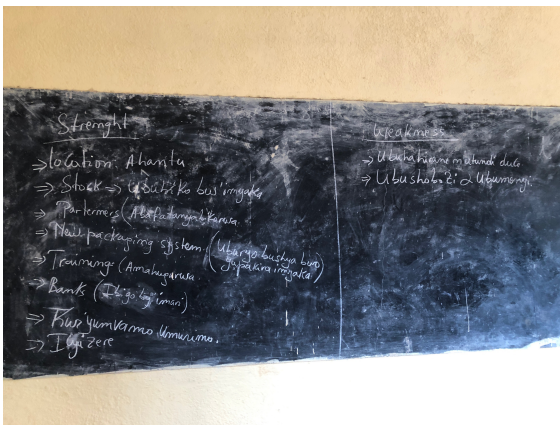 Strenght
⇒ location: Ahantu
⇒ Stock ⇒ Ububiko bus'imyaka
⇒ Parterners (Abafatanyabikorwa
⇒ New packaging system (Uburyo bushya bwo
gupakira imyaka)
⇒ Training (Amahugurwa
⇒ Banks (Ibigo by'imari)
⇒ Kwiyumvamo Umurimo.
⇒ Icyizere
Weakness
⇒ Ubuhahirane
⇒ Ubushobozi & Ubumenyi